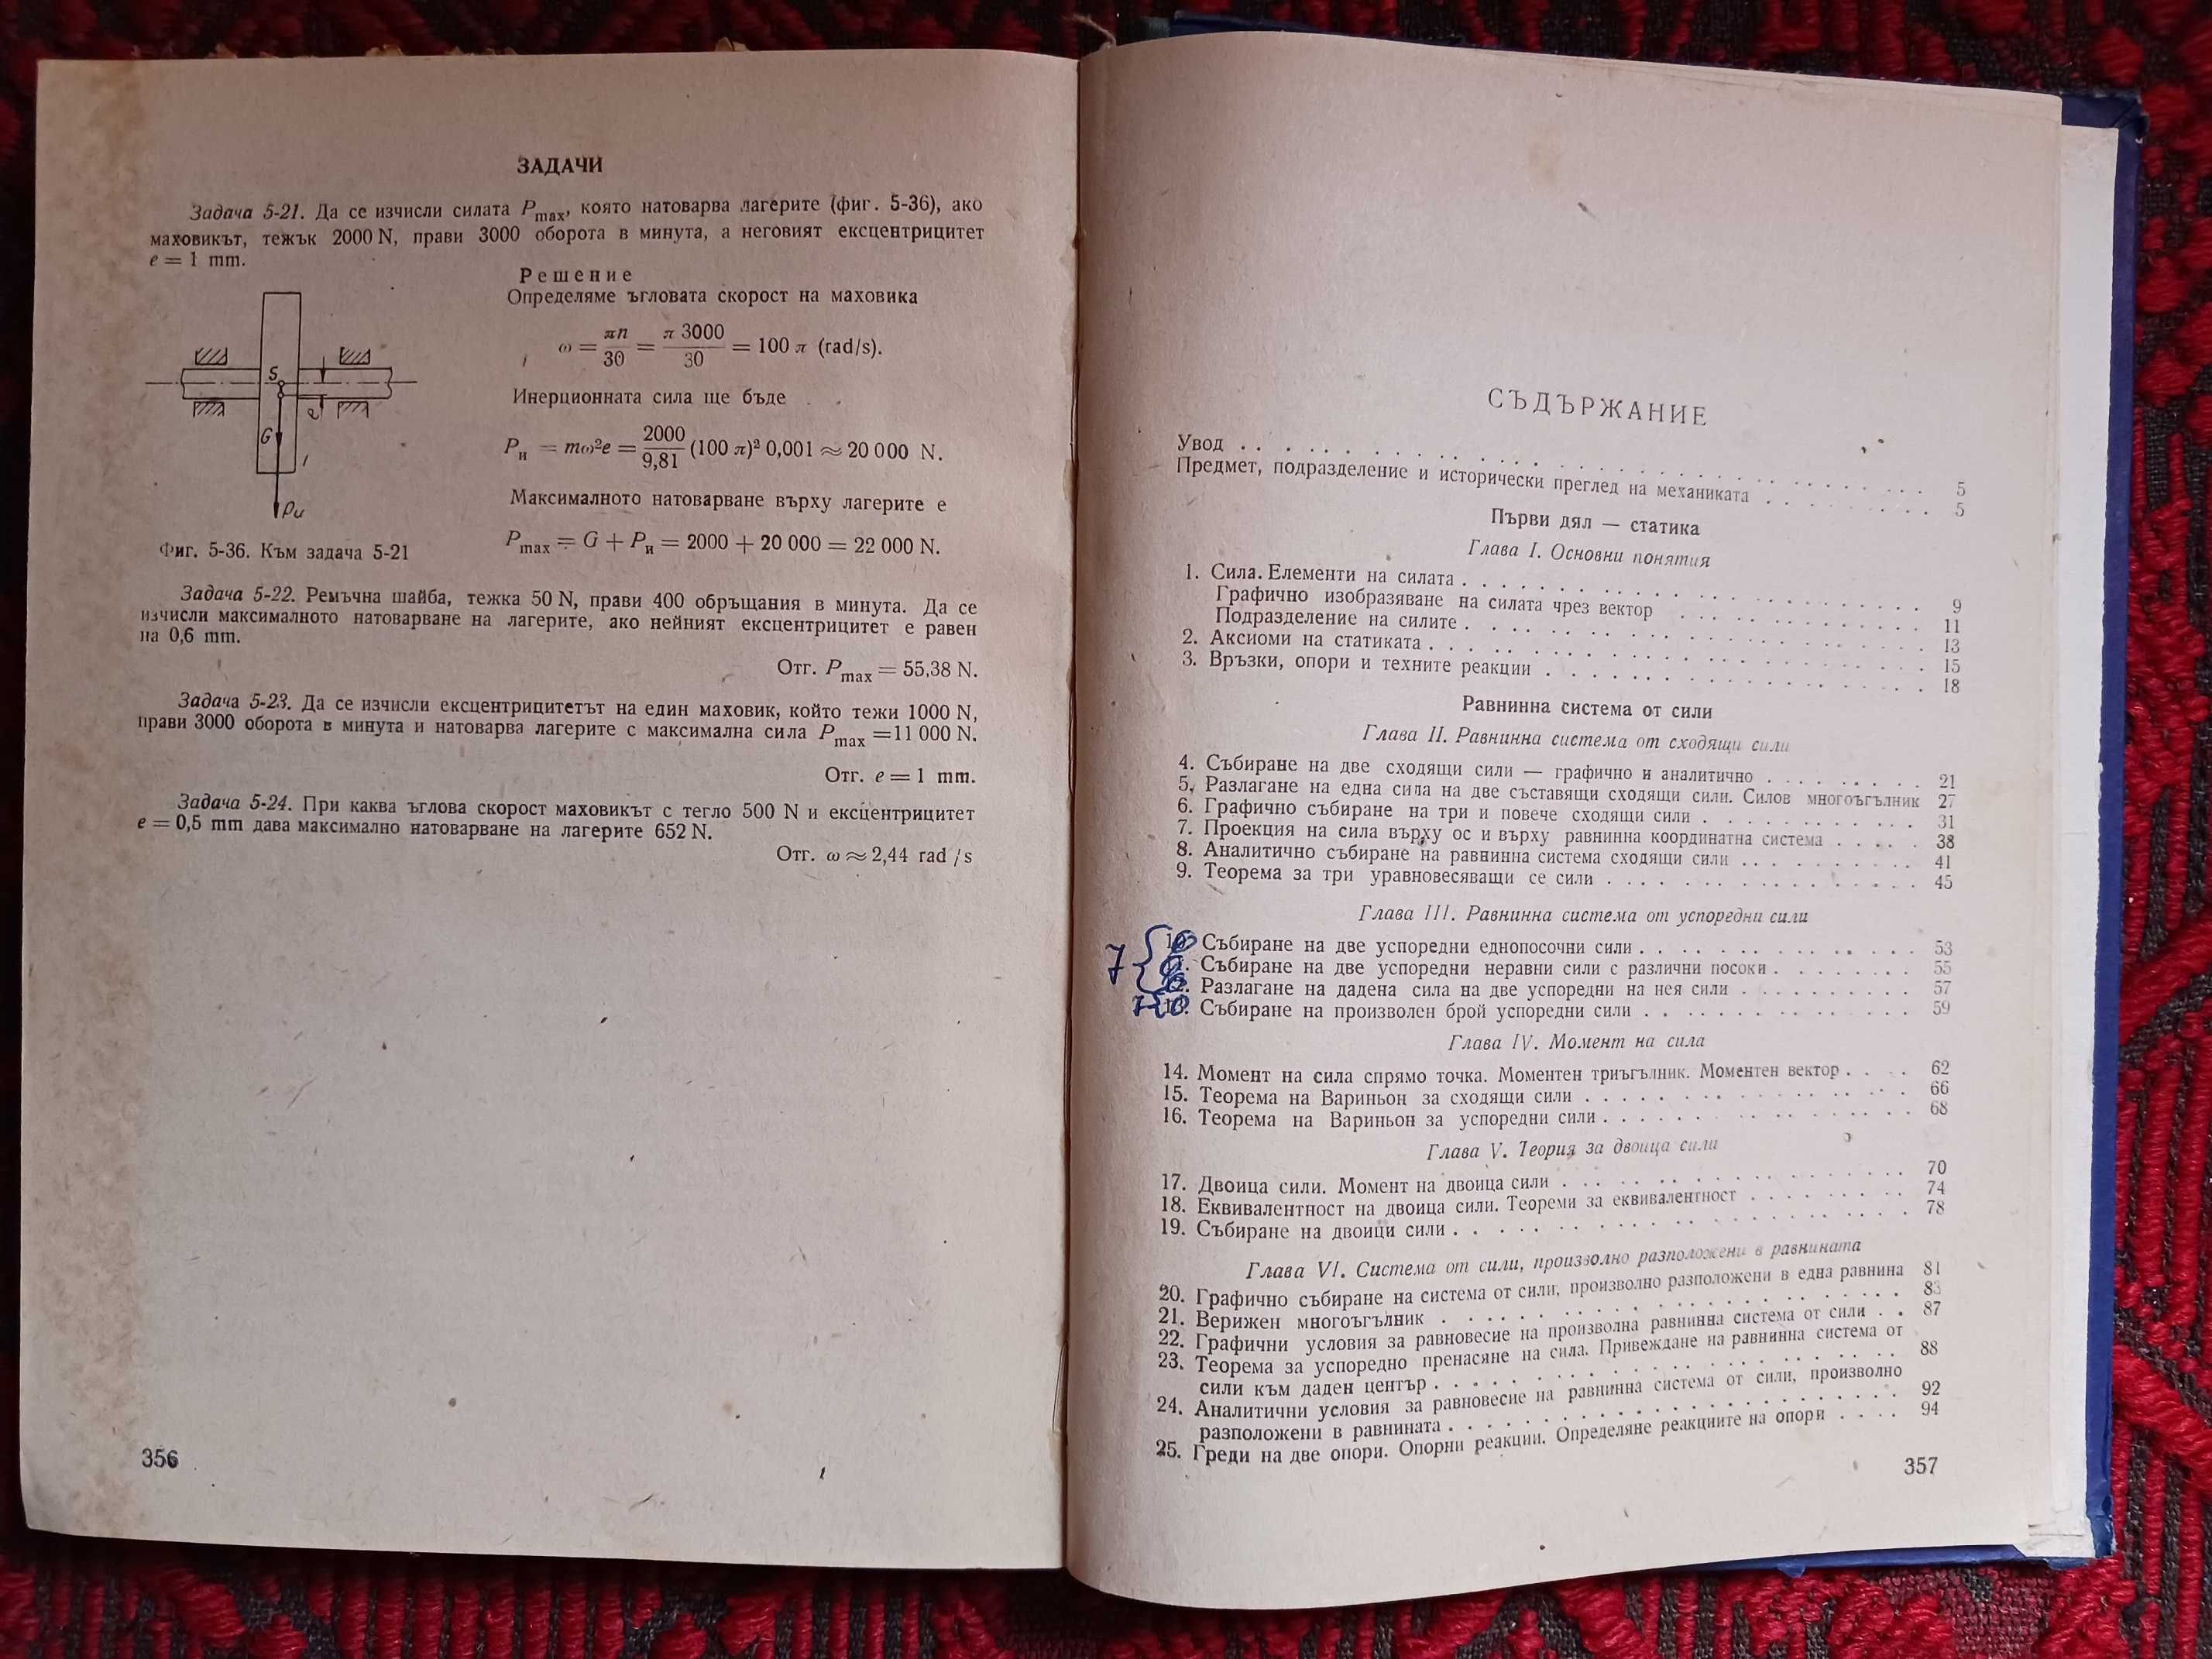 ЗАДАЧИ
Задача 5-21. Да се изчисли силата Pmax, която натоварва лагерите (фиг. 5-36), ако
маховикът, тежък 2000 N, прави 3000 оборота в минута, а неговият ексцентрицитет
e = 1 mm.
Решение
Определяме ъгловата скорост на маховика
ω = πn/30 = π 3000/30 = 100 π (rad/s).
Инерционната сила ще бъде
Pи = mω²e = 2000/9,81 (100 π)² 0,001 ≈ 20 000 N.
Максималното натоварване върху лагерите е
Pmax = G + Pи = 2000 + 20 000 = 22 000 N.
S
e
G
Pи
Фиг. 5-36. Към задача 5-21
Задача 5-22. Ремъчна шайба, тежка 50 N, прави 400 обръщания в минута. Да се
изчисли максималното натоварване на лагерите, ако нейният ексцентрицитет е равен
на 0,6 mm.
Отг. Pmax = 55,38 N.
Задача 5-23. Да се изчисли ексцентрицитетът на един маховик, който тежи 1000 N,
прави 3000 оборота в минута и натоварва лагерите с максимална сила Pmax =11 000 N.
Отг. e = 1 mm.
Задача 5-24. При каква ъглова скорост маховикът с тегло 500 N и ексцентрицитет
e = 0,5 mm дава максимално натоварване на лагерите 652 N.
Отг. ω ≈ 2,44 rad /s
356
СЪДЪРЖАНИЕ
Увод . . . . . . . . . . 5
Предмет, подразделение и исторически преглед на механиката . . . . 5
Първи дял — статика
Глава I. Основни понятия
1. Сила. Елементи на силата . . . . . . . . . . 9
Графично изобразяване на силата чрез вектор . . . . . . 11
Подразделение на силите . . . . . . . . . . 13
2. Аксиоми на статиката . . . . . . . . . . 15
3. Връзки, опори и техните реакции . . . . . . . . 18
Равнинна система от сили
Глава II. Равнинна система от сходящи сили
4. Събиране на две сходящи сили — графично и аналитично . . . . . 21
5. Разлагане на една сила на две съставящи сходящи сили. Силов многоъгълник 27
6. Графично събиране на три и повече сходящи сили . . . . . . 31
7. Проекция на сила върху ос и върху равнинна координатна система . . . . . 38
8. Аналитично събиране на равнинна система сходящи сили . . . . . 41
9. Теорема за три уравновесяващи се сили . . . . . . . 45
Глава III. Равнинна система от успоредни сили
7 { Събиране на две успоредни еднопосочни сили . . . . . . . 53
Събиране на две успоредни неравни сили с различни посоки . . . . . 55
Разлагане на дадена сила на две успоредни на нея сили . . . . . 57
Събиране на произволен брой успоредни сили . . . . . . . 59
Глава IV. Момент на сила
14. Момент на сила спрямо точка. Моментен триъгълник. Моментен вектор . . . . 62
15. Теорема на Вариньон за сходящи сили . . . . . . . 66
16. Теорема на Вариньон за успоредни сили . . . . . . . 68
Глава V. Теория за двоица сили
17. Двоица сили. Момент на двоица сили . . . . . . . 70
18. Еквивалентност на двоица сили. Теореми за еквивалентност . . . . . 74
19. Събиране на двоици сили . . . . . . . . . . 78
Глава VI. Система от сили, произволно разположени в равнината
20. Графично събиране на система от сили, произволно разположени в една равнина 81
21. Верижен многоъгълник . . . . . . . . . . 83
22. Графични условия за равновесие на произволна равнинна система от сили . . 87
23. Теорема за успоредно пренасяне на сила. Привеждане на равнинна система от
сили към даден център . . . . . . . . . . 88
24. Аналитични условия за равновесие на равнинна система от сили, произволно
разположени в равнината . . . . . . . . . . 92
25. Греди на две опори. Опорни реакции. Определяне реакциите на опори . . . . 94
357